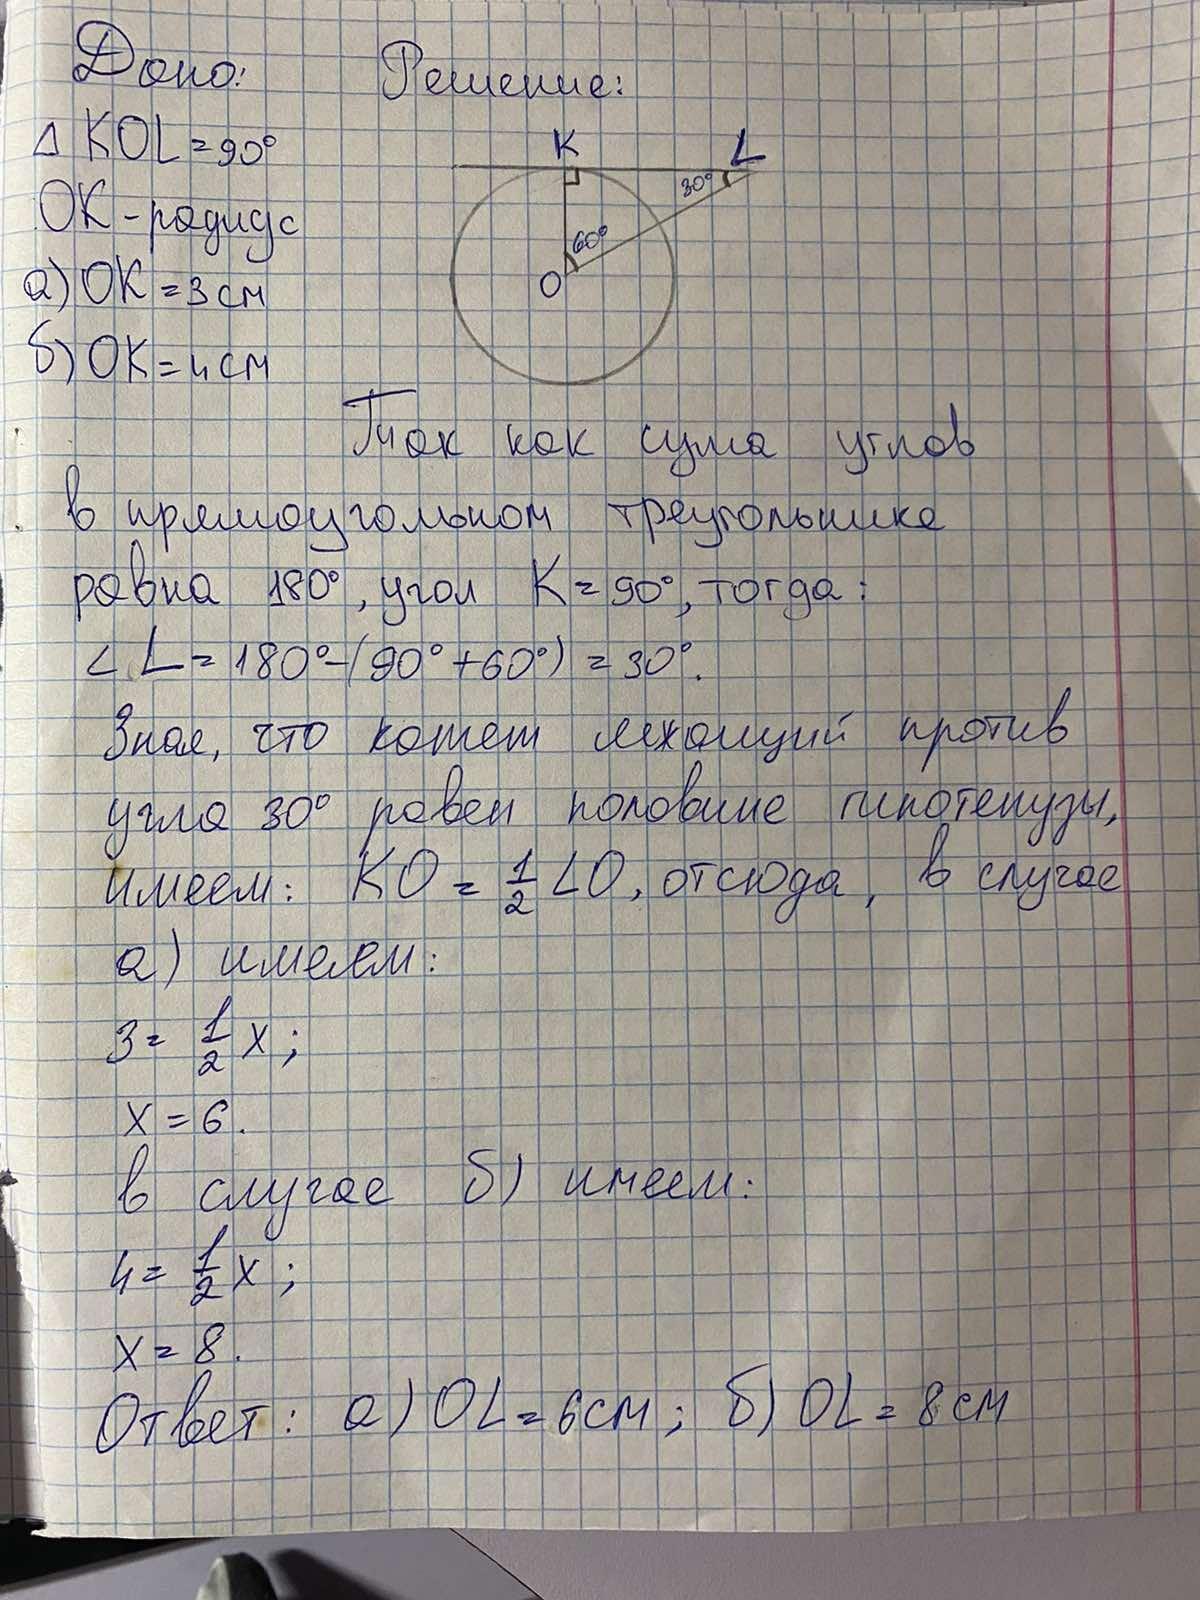 Дано: Решение:
Δ KOL = 90°
OK - радиус
а) OK = 3 см
б) OK = 4 см
K
L
30°
60°
O
Так как сума углов
в прямоугольном треугольнике
равна 180°, угол K = 90°, тогда:
∠ L = 180° - (90° + 60°) = 30°.
Зная, что катет лежащий против
угла 30° равен половине гипотенузы,
имеем: KO = 1/2 LO, отсюда, в случае
а) имеем:
3 = 1/2 x;
x = 6.
в случае б) имеем:
4 = 1/2 x;
x = 8.
Ответ: а) OL = 6 см; б) OL = 8 см